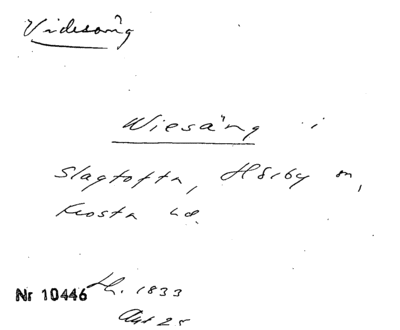 Videsång
Wiesäng i
Slagtofta, Hörby sn,
Frosta hd.
Nr 10446 Lh. 1833
Akt 25